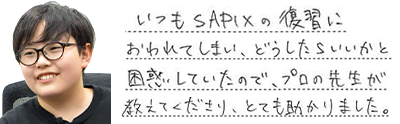 いつもSAPIXの復習に
おわれてしまい、どうしたらいいかと
困惑していたので、プロの先生が
教えてくださり、とても助かりました。